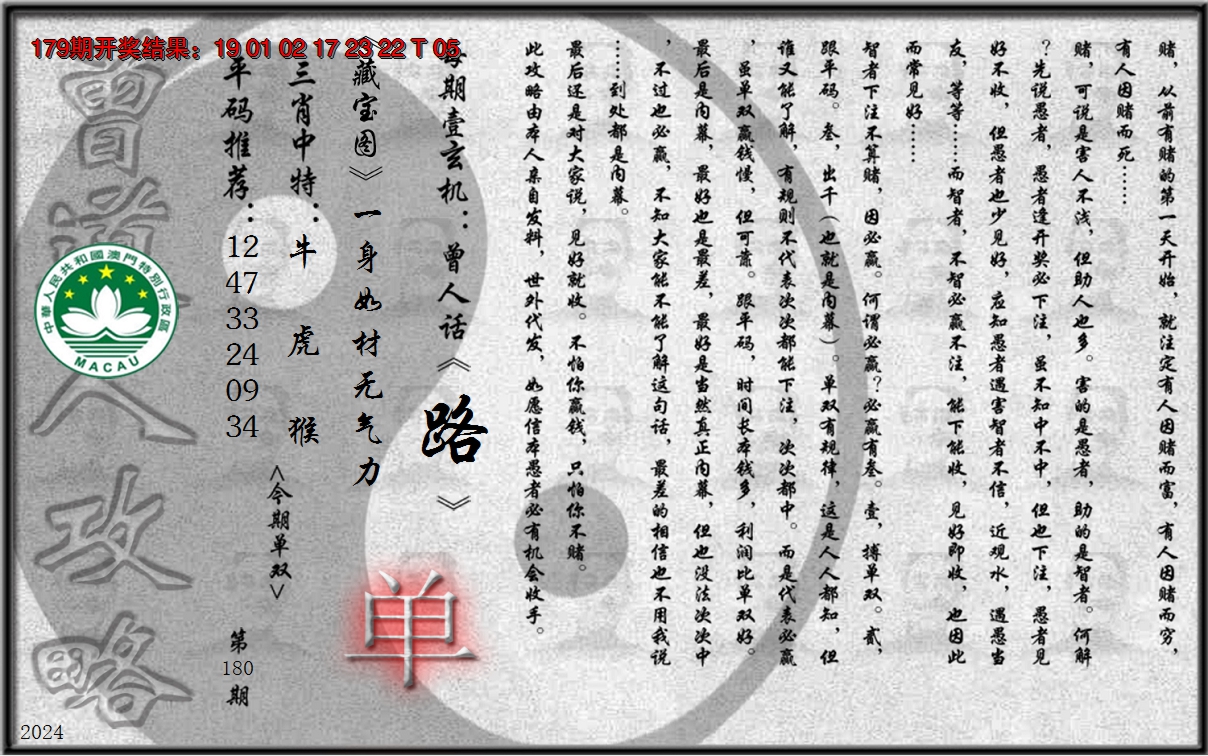 179期开奖结果：19 01 02 17 23 22 T 05
赌，从前有赌的第一天开始，就注定有人因赌而富，有人因赌而穷，
有人因赌而死……
赌，可说是害人不浅，但助人也多。害的是愚者，助的是智者。何解
？先说愚者，愚者逢开奖必下注，虽不知中不中，但也下注，愚者见
好不收，但愚者也少见好，应知愚者遇害智者不信，近观水，遇愚当
友，等等……而智者，不智必赢不注，能下能收，见好即收，也因此
而常见好……
智者下注不算赌，因必赢。何谓必赢？必赢有叁。壹，搏单双。贰，
跟平码。叁，出千（也就是内幕）。单双有规律，这是人人都知，但
谁又能了解，有规则不代表次次都能下注，次次都中。而是代表必赢
，虽单双赢钱慢，但可靠。跟平码，时间长本钱多，利润比单双好。
最后是内幕，最好也是最差，最好是当然真正内幕，但也没法次次中
，不过也必赢，不知大家能不能了解这句话，最差的相信也不用我说
……到处都是内幕。
最后还是对大家说，见好就收。不怕你赢钱，只怕你不赌。
此攻略由本人亲自发料，世外代发，如愿信本愚者必有机会收手。
每期壹玄机：曾人话《路》
《藏宝图》一身如材无气力
三肖中特：牛 虎 猴
平码推荐：12 47 33 24 09 34
<今期单双>
单
第
180
期
曾道人攻略
中華人民共和國澳門特別行政區
MACAU
2024